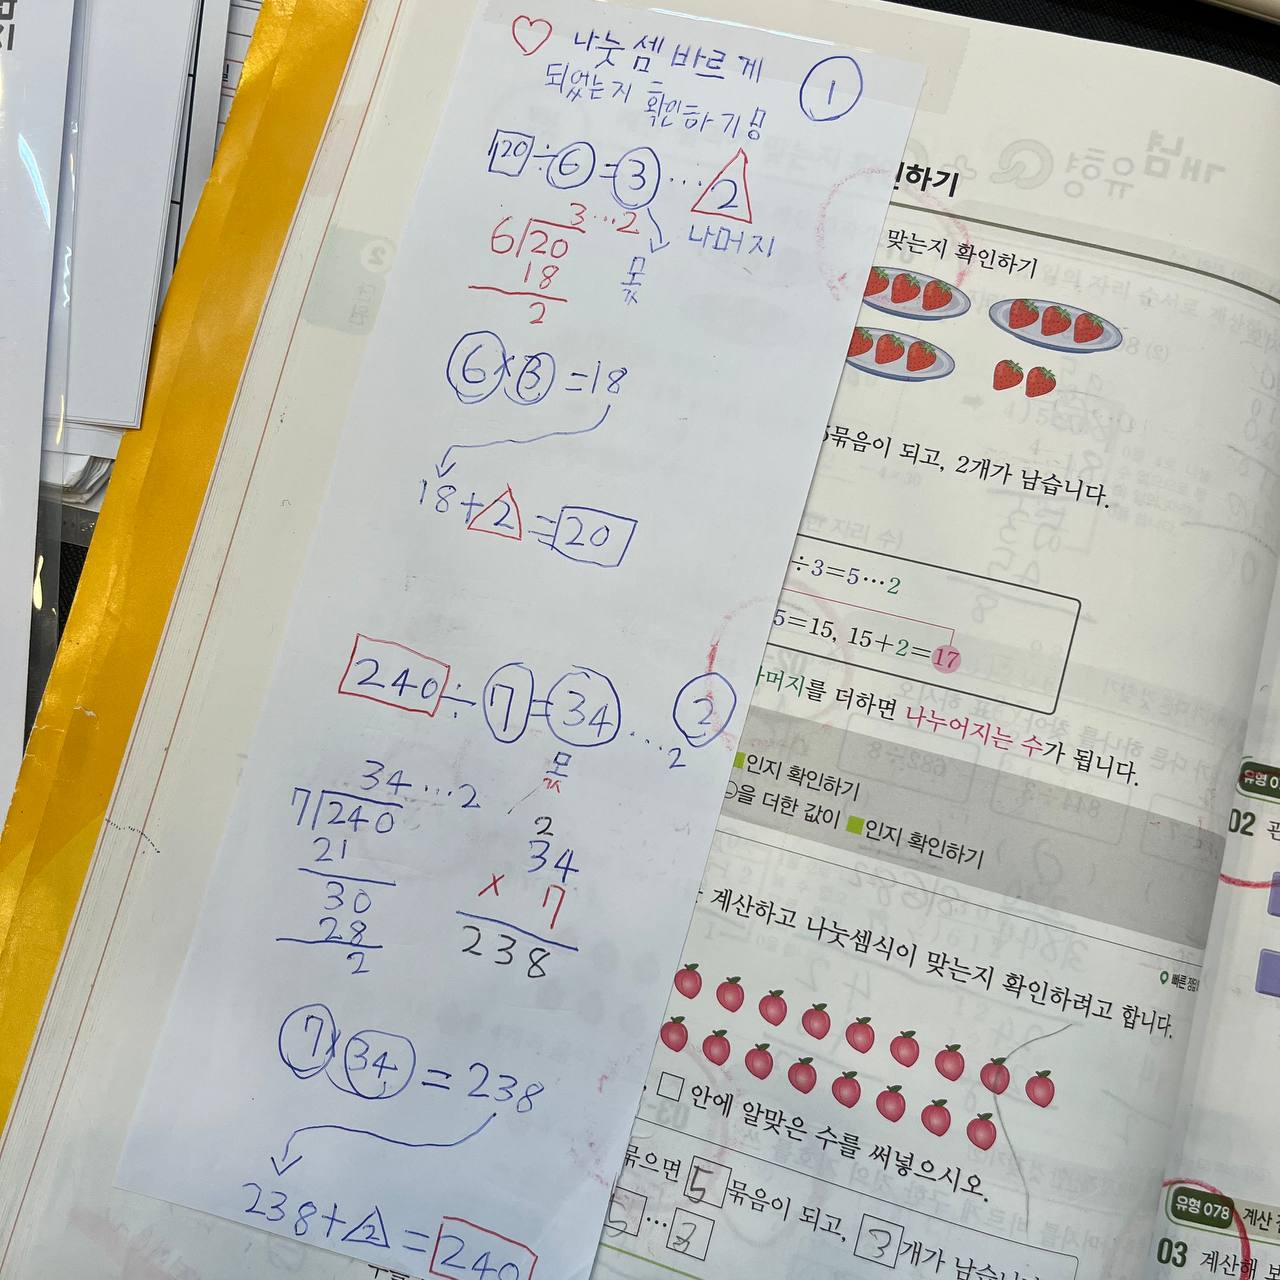 ♡ 나눗셈 바르게 ①
되었는지 확인하기
20÷6=3…2
몫
나머지
3…2
6)20
18
2
6×3=18
18+2=20
240÷7=34…2
2
몫
34…2
7)240
21
30
28
2
2
34
× 7
238
7×34=238
238+2=240
인하기
맞는지 확인하기
5묶음이 되고, 2개가 남습니다.
÷3=5…2
5=15, 15+2=17
머지를 더하면 나누어지는 수가 됩니다.
■인지 확인하기
을 더한 값이 ■인지 확인하기
계산하고 나눗셈식이 맞는지 확인하려고 합니다.
□ 안에 알맞은 수를 써넣으시오.
묶으면 5 묶음이 되고, 3 개가 남습니
5…3
02
유형 078 계산
03 계산해 보
개념유형